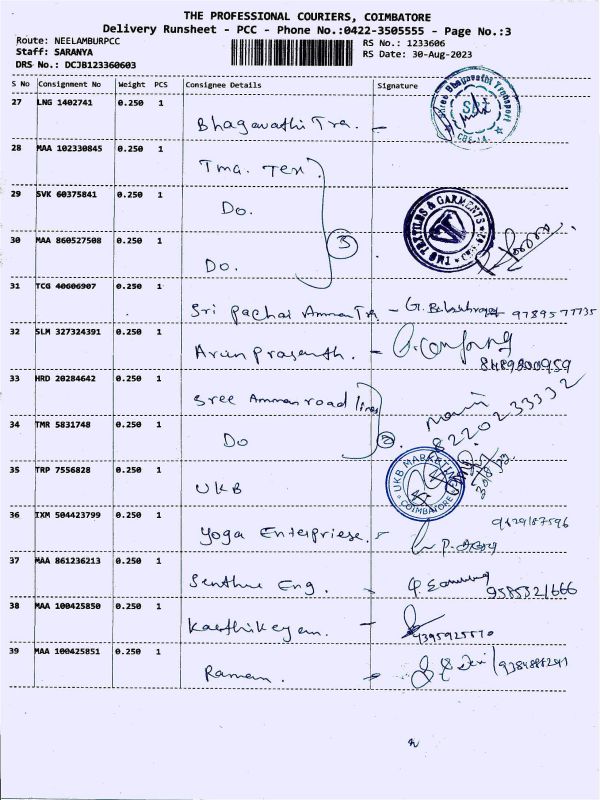 THE PROFESSIONAL COURIERS, COIMBATORE
Delivery Runsheet - PCC - Phone No.:0422-3505555 - Page No.:3
Route: NEELAMBURPCC RS No.: 1233606
Staff: SARANYA RS Date: 30-Aug-2023
DRS No.: DCJB123360603
S No Consignment No Weight PCS Consignee Details Signature
27 LNG 1402741 0.250 1
Bhagavathi Tra. -
Shree Bhagavathi Transport
SBT
28 MAA 102330845 0.250 1
Tmg. Tex.
29 SVK 60375841 0.250 1
Do.
3
TMG TEXTILES & GARMENTS
30 MAA 860527508 0.250 1
Do.
31 TCG 40606907 0.250 1
Sri Pachai Amman Tra - 9789577735
32 SLM 327324391 0.250 1
Arun Prasanth. - 8489800959
33 HRD 20284642 0.250 1
Sree Amman road lines
8220233332
34 TMR 5831748 0.250 1
Do
2
35 TRP 7556828 0.250 1
UKB
UKB MARKETING
COIMBATORE
36 IXM 504423799 0.250 1
Yoga Enterpriese. - 9629187596
37 MAA 861236213 0.250 1
Senthur Eng. - 9585321666
38 MAA 100425850 0.250 1
Karthikeyan. - 
39 MAA 100425851 0.250 1
Raman. -